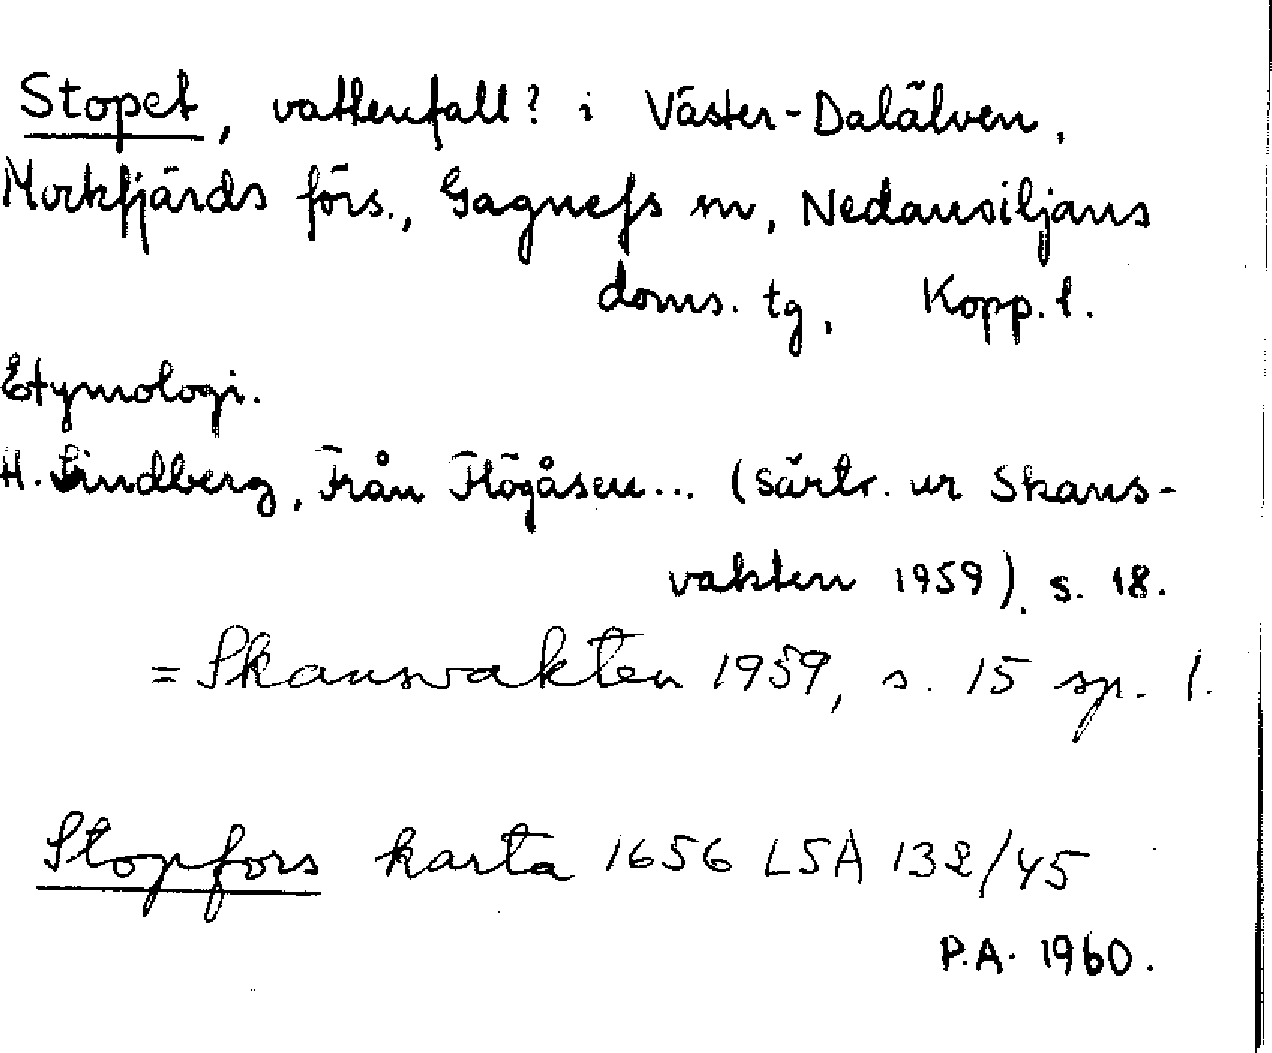 Stopet, vattenfall? i Väster-Dalälven,
Mockfjärds förs., Gagnefs sn, Nedansiljans
doms. tg, Kopp. l.
Etymologi.
H. Lindberg, Från Flögåsen... (särtr. ur Skans-
vakten 1959), s. 18.
= Skansvakten 1959, s. 15 sp. 1.
Stopfors karta 1656 LSA 132/45
P.A. 1960.